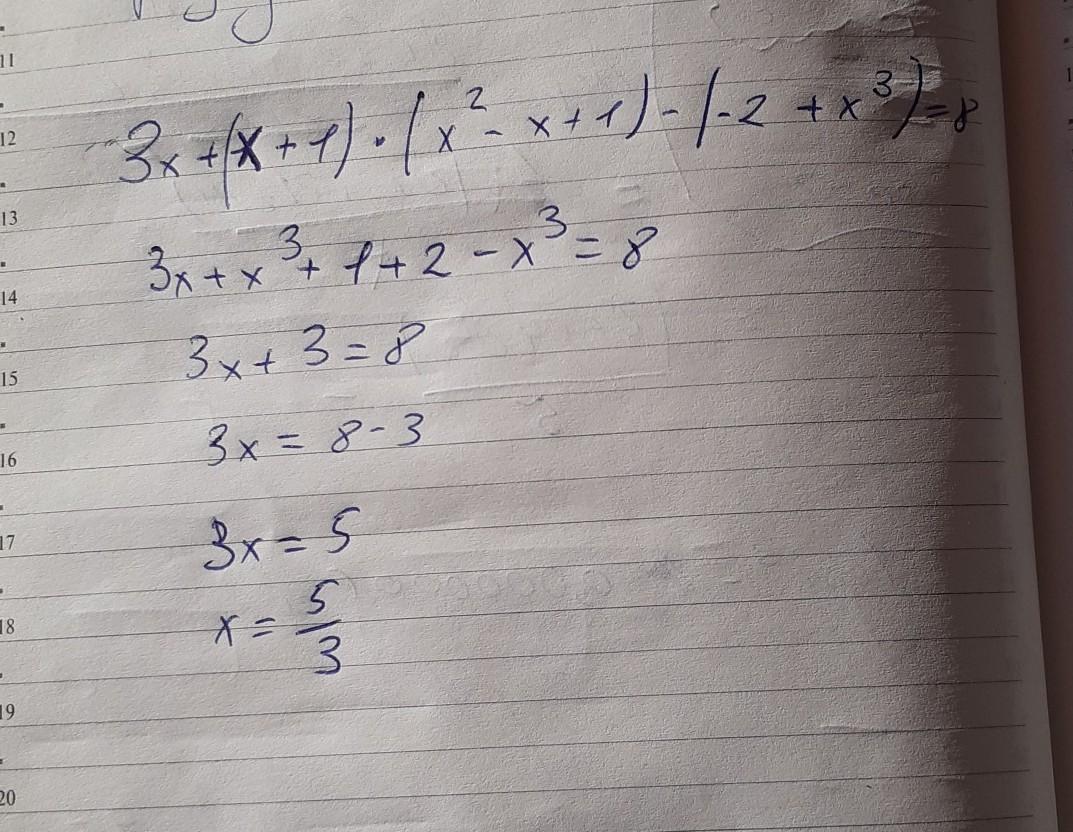 11
12
3x+(x+1)·(x²-x+1)-(-2+x³)=8
13
3x+x³+1+2-x³=8
14
3x+3=8
15
3x=8-3
16
3x=5
17
x=5/3
18
19
20